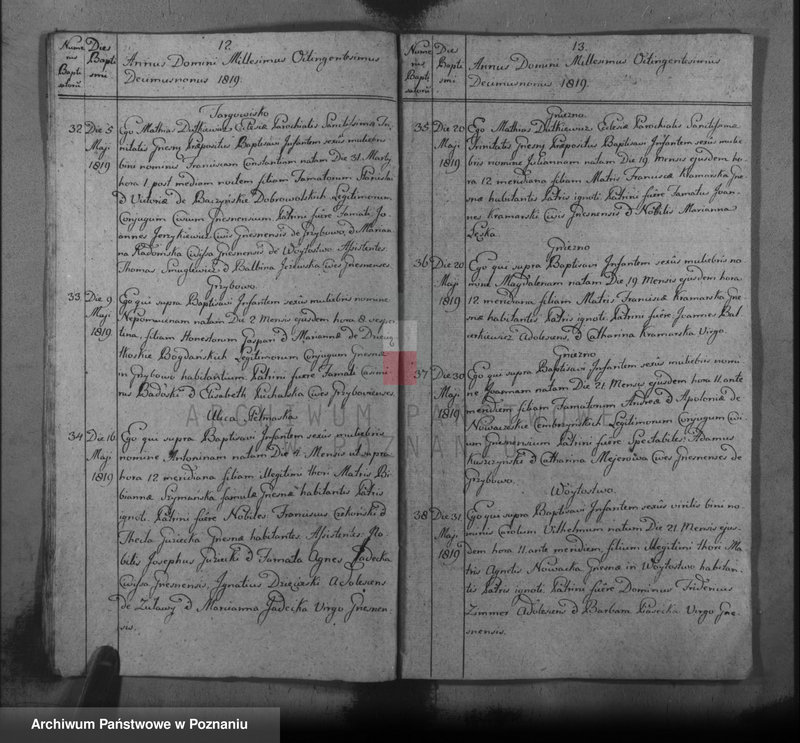 Nume
rus
Bapti
satorũ
Die
Bapti
smi
12.
Annus Domini Millesimus Octingentesimus
Decimusnonus 1819.
Targowisko
32 Die 5 Maji 1819
Ego Mathias Dutkiewicz Eclesiæ Parochialis Sanctissimæ Tri
nitatis Gnesnæ Præpositus Baptisavi Infantem sexûs muliebris
bini nominis Franciscam Constantiam natam Die 31 Martij
hora 1 post mediam noctem filiam Famatorum Stanislai
& Victoriæ de Baczyńskie Dobrowolskich Legitimorum
Conjugum Civium Gnesnensium. Patrini fuêre Famati Jo
annes Jerzykiewicz Civis Gnesnensis de Grzybowo, & Marian
na Radomska Civissa Gnesnensis de Woytostwo. Assistentes
Thomas Smuglewicz & Balbina Cives Gnesnenses.
Grzybowo
33 Die 9 Maji 1819
Ego qui supra Baptisavi Infantem sexûs muliebris nomine
Nepomucenam natam Die 2 Mensis ejusdem hora 8 vesper
tina, filiam Honestorum Gaspari & Mariannæ de
Bogdańskich Legitimorum Conjugum Gnesnæ
in Grzybowo habitantium. Patrini fuêre Famati Casimi
rus Badoski & Elisabeth Cives Grzybovienses.
Ulica
34 Die 16 Maji 1819
Ego qui supra Baptisavi Infantem sexûs muliebris
nomine Antoninam natam Die 4 Mensis ut supra
hora 12 meridiana filiam Illegitimi thori Matris Bi
biannæ Szymańska famula Gnesnæ habitantis Patris
ignoti. Patrini fuêre Nobiles Franciscus &
Thecla Gnesnæ habitantes. Assistentes No
bilis Josephus & Famata Agnes Jadecka
Civissa Gnesnensis, Ignatius Adolescens
de Zulawy & Marianna Jadecka Virgo Gnesnen
sis.
Nume
rus
Bapti
satorũ
Die
Bapti
smi
13.
Annus Domini Millesimus Octingentesimus
Decimusnonus 1819.
Gniezno
35 Die 20 Maji 1819
Ego Mathias Dutkiewicz Eclesiæ Parochialis Sanctissimæ
Trinitatis Gnesnæ Præpositus Baptisavi Infantem sexûs mulie
bris nomine Juliannam natam Die 19 Mensis ejusdem ho
ra 12 meridiana filiam Matris Franciscæ Kramarska Gne
snæ habitantis Patris ignoti. Patrini fuêre Famatus Joan
nes Kramarski Civis Gnesnensis & Nobilis Marianna
Gniezno
36 Die 20 Maji 1819
Ego qui supra Baptisavi Infantem sexûs muliebris no
mine Magdalenam natam Die 19 Mensis ejusdem hora
12 meridiana filiam Matris Franciscæ Kramarska Gne
snæ habitantis Patris ignoti. Patrini fuêre Joannes Bal
cerkiewicz Adolescens, & Catharina Kramarska Virgo.
Gniezno
37 Die 30 Maji 1819
Ego qui supra Baptisavi Infantem sexûs muliebris nomi
ne Joannam natam Die 21 Mensis ejusdem hora 11 ante
meridiem filiam Famatorum Andreæ & Apoloniæ de
Nowaczeskie Cembrzyńskich Legitimorum Conjugum Civi
um Gnesnensium Patrini fuêre Spectabiles Adamus
& Catharina Mejerowa Cives Gnesnenses de
Grzybowo.
Woytostwo
38 Die 31 Maji 1819
Ego qui supra Baptisavi Infantem sexûs virilis bini no
minis Carolum Vilhelmum natum Die 21 Mensis ejus
dem hora 11 ante meridiem, filium Illegitimi thori Ma
tris Agnetis Nowacka Gnesnæ in Woytostwo habitan
tis Patris ignoti. Patrini fuêre Dominus Fridericus
Zimmer Adolescens & Barbara Virgo Gne
snensis.
Archiwum Państwowe w Poznaniu